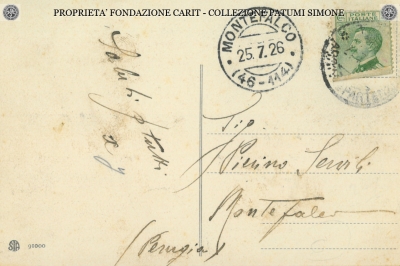 PROPRIETA' FONDAZIONE CARIT - COLLEZIONE PATUMI SIMONE
MONTEFALCO
25.7.26
(46-114)
POSTE ITALIANE
Saluti a tutti
Sig.
Pierino Servili
Montefalco
(Perugia)
SIA 90800